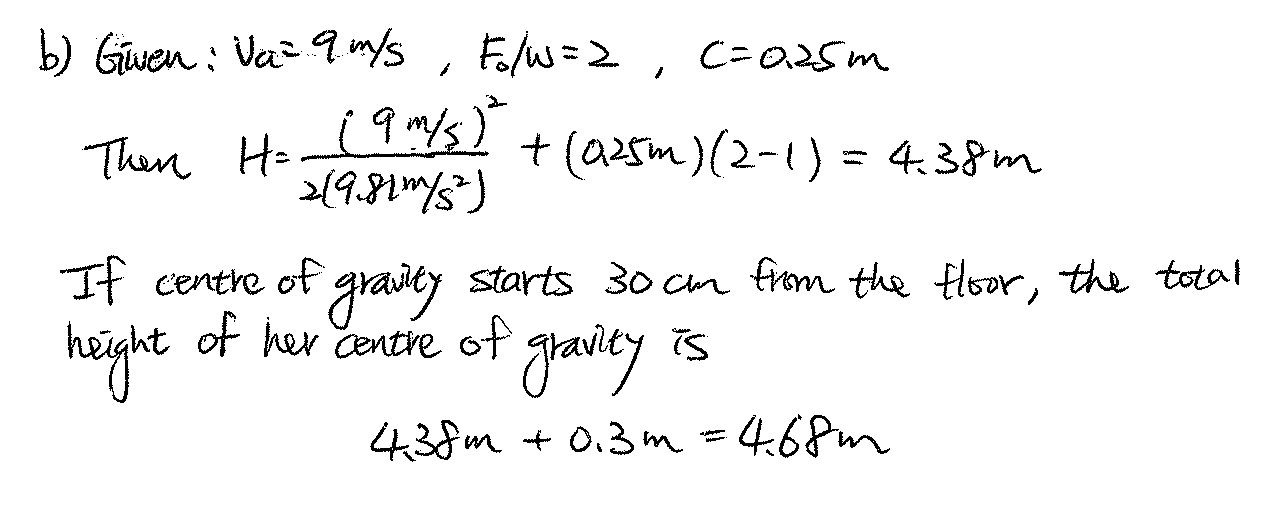 b) Given : Va = 9 m/s , Fo/w = 2 , C = 0.25 m
Then H = (9 m/s)² / 2(9.81 m/s²) + (0.25m)(2-1) = 4.38m
If centre of gravity starts 30 cm from the floor, the total
height of her centre of gravity is
4.38m + 0.3m = 4.68m